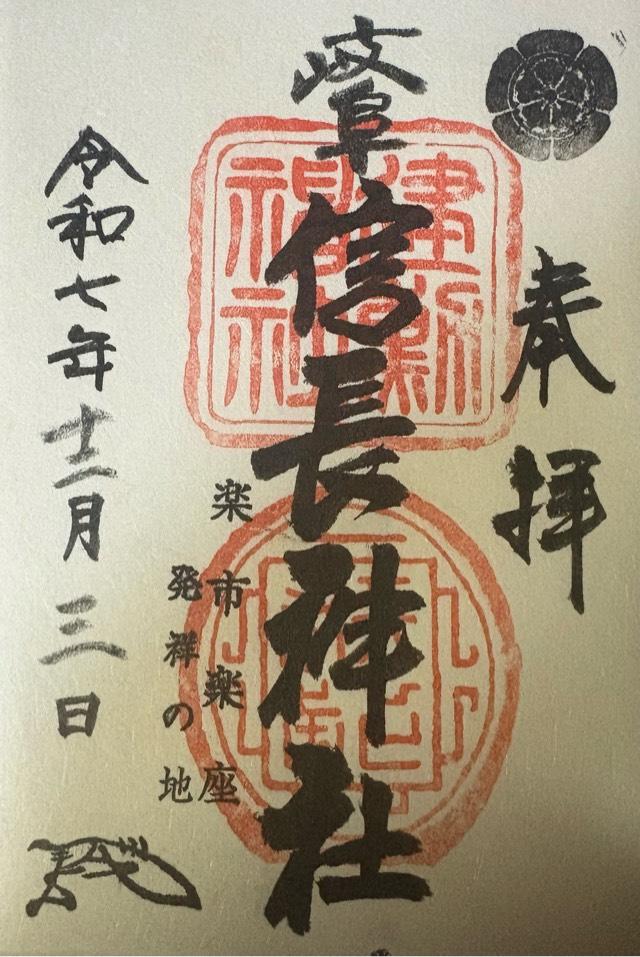 奉拝
岐阜信長神社
建勲
神社
楽市楽座
発祥の地
令和七年十二月三日